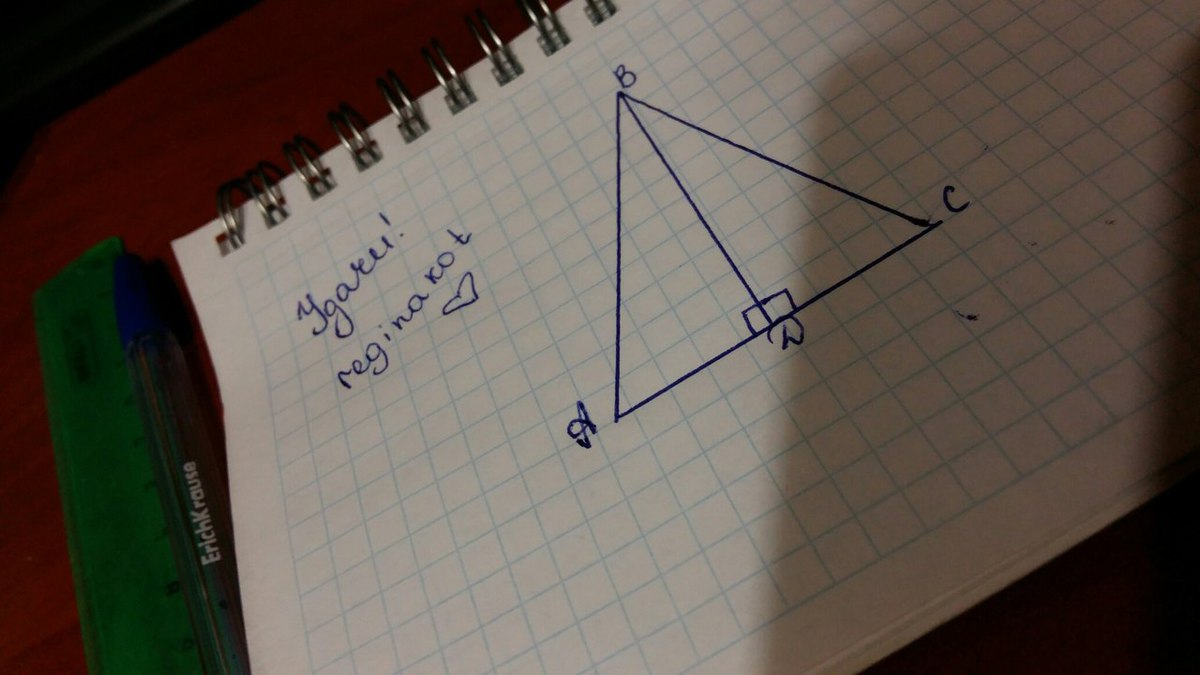 Удачи!
reginakot
B
C
D
A
ErichKrause